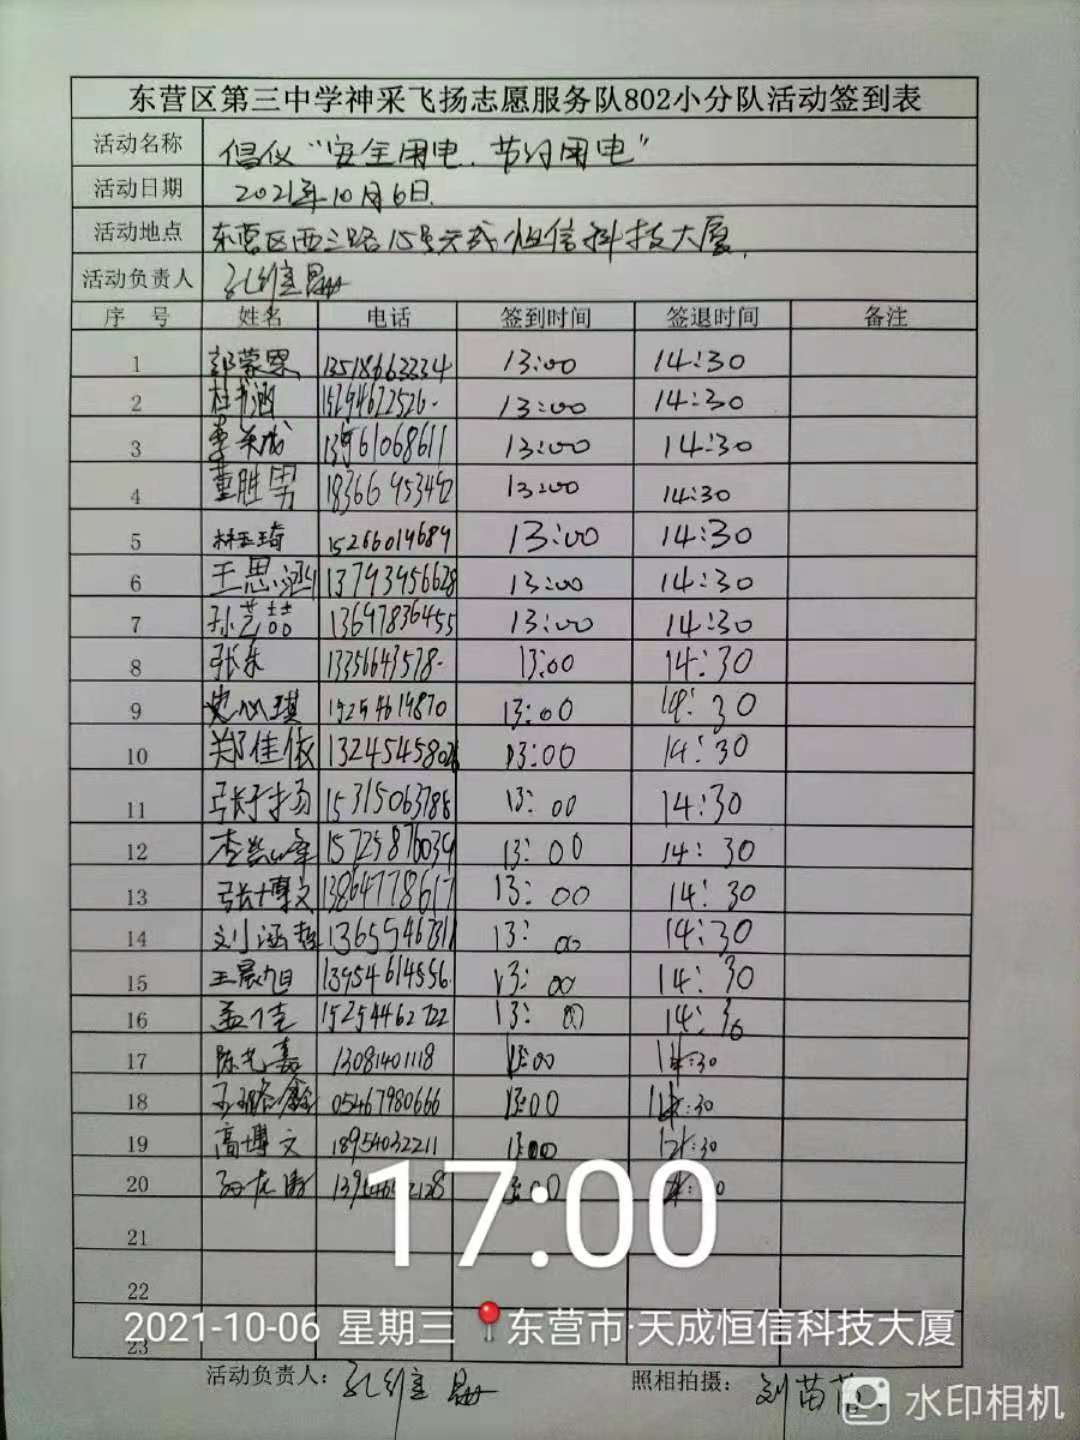 东营区第三中学神采飞扬志愿服务队802小分队活动签到表
活动名称 倡仪“安全用电、节约用电”
活动日期 2021年10月6日.
活动地点 东营区西三路15号天成恒信科技大厦.
活动负责人 孔维
序 号 姓名 电话 签到时间 签退时间 备注
1 郭蒙恩 13518663334 13:00 14:30
2 杜书涵 13:00 14:30
3 李 13961068611 13:00 14:30
4 董胜男 18366953492 13:00 14:30
5 林玉琦 15266014689 13:00 14:30
6 王思涵 13793956628 13:00 14:30
7 孙艺喆 13697836455 13:00 14:30
8 张乐 13356643578 13:00 14:30
9 史心琪 15254614870 13:00 14:30
10 郑佳依 13:00 14:30
11 张子扬 15315063788 13:00 14:30
12 李凯峰 15725876039 13:00 14:30
13 张博文 13864778617 13:00 14:30
14 刘涵哲 13:00 14:30
15 王晨旭 13954614556 13:00 14:30
16 孟佳 15254462722 13:00 14:30
17 陈艺嘉 13081401118 13:00 14:30
18 鑫 05467980666 13:00 14:30
19 高博文 18954032211 13:00 14:30
20 13:00
17:00
21
22
2021-10-06 星期三 东营市·天成恒信科技大厦
23
活动负责人: 孔维 照相拍摄: 刘苗
水印相机